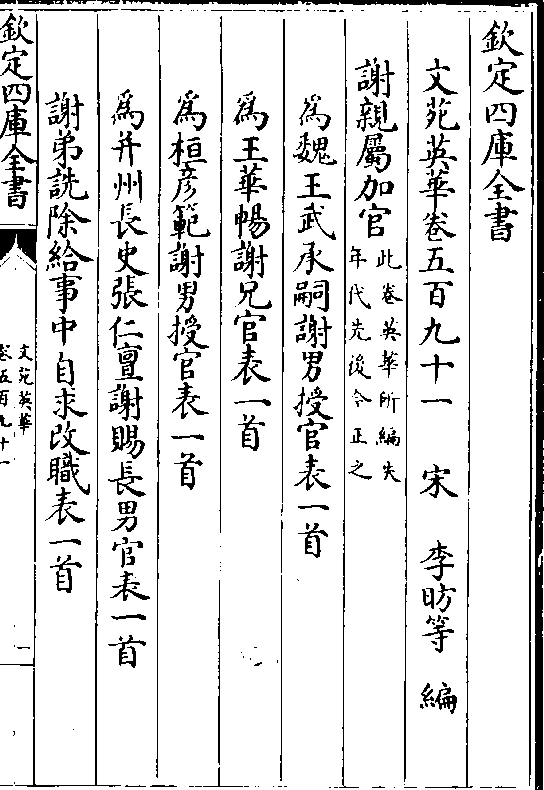 欽定四庫全書
文苑英華卷五百九十一 宋 李昉等 編
謝親屬加官此卷英華所編失
年代先後今正之
為魏王武承嗣謝男授官表一首
為王華暢謝兄官表一首
為桓彦範謝男授官表一首
為并州長史張仁亶謝賜長男官表一首
謝弟詵除給事中自求改職表一首
欽定四庫全書
文苑英華
卷五百九十一
一